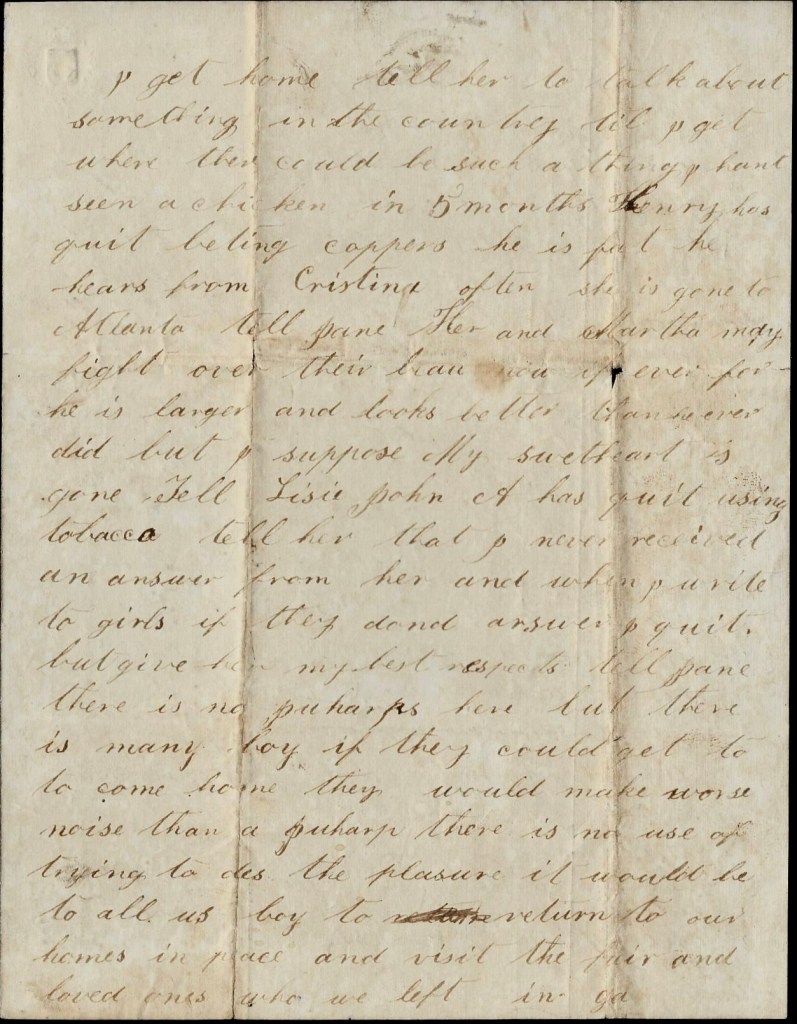 I get home tell her to talk about
something in the country til I get
where ther could be such a thing I hant
seen a chicken in 5 months Henry has
quit beting coppers he is fat he
hears from Cristina often she is gone to
Atlanta tell Jane Her and Martha may
fight over their beau now if ever for-
he is larger and looks better than he ever
did but I suppose My swetheart is
gone Tell Lisie John A has quit using
tobacco tell her that I never received
an answer from her and when I write
to girls if they dond answer I quit.
but give her my best respects tell Jane
there is no Juharps here but there
is many boy if they could get to
to come home they would make worse
noise than a Juharp there is no use of
trying to des the pleasure it would be
to all us boy to return to our
homes in peace and visit the fair and
loved ones who we left in ga